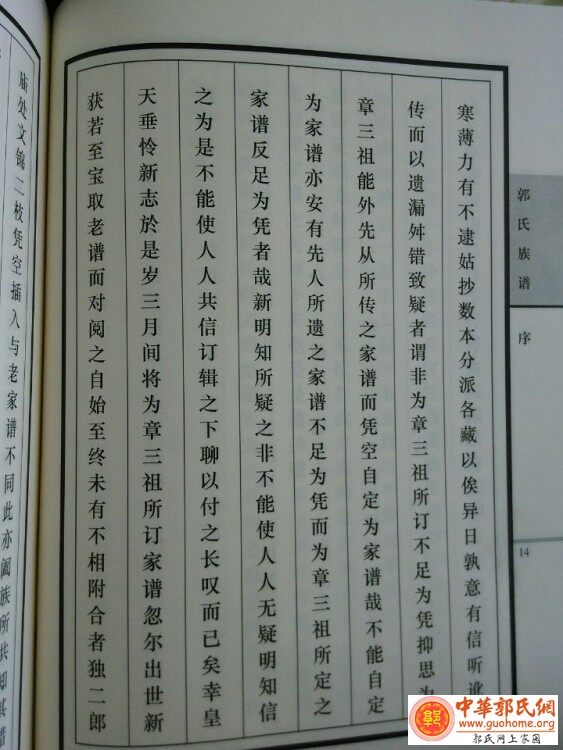 寒薄力有不逮姑抄数本分派各藏以俟异日孰意有信听讹
传而以遗漏舛错致疑者谓非为章三祖所订不足为凭抑思为
章三祖能外先从所传之家谱而凭空自定为家谱哉不能自定
为家谱亦安有先人所遗之家谱不足为凭而为章三祖所定之
家谱反足为凭者哉新明知所疑之非不能使人人无疑明知信
之为是不能使人人共信订辑之下聊以付之长叹而已矣幸皇
天垂怜新志於是岁三月间将为章三祖所订家谱忽尔出世新
获若至宝取老谱而对阅之自始至终未有不相附合者独二郎
庙处文锦二枝凭空插入与老家谱不同此亦阖族所共知其
郭氏族谱
序
14
中華郭氏網
www.guohome.org
郭氏网上家园